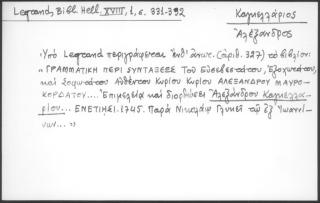 Legrand, Bibl. Hell. XVIII, 1, σ. 331-332
Καγκελλάριος
Ἀλέξανδρος
Ὑπὸ Legrand περιγράφεται ἐνθ' ἀνωτ. (ἀριθ. 327) τὸ βιβλίον:
"ΓΡΑΜΜΑΤΙΚΗ ΠΕΡΙ ΣΥΝΤΑΞΕΩΣ Τοῦ Εὐσεβεστάτου, Ἐξοχωτάτου,
καὶ Σοφωτάτου Αὐθέντου Κυρίου Κυρίου ΑΛΕΞΑΝΔΡΟΥ ΜΑΥΡΟ-
ΚΟΡΔΑΤΟΥ.... Ἐπιμελείᾳ καὶ διορθώσει Ἀλεξάνδρου Καγκελλα-
ρίου... ΕΝΕΤΙΗΣΙ. 1745. Παρὰ Νικολάῳ Γλυκεῖ τῷ ἐξ Ἰωαννί-
νων... »